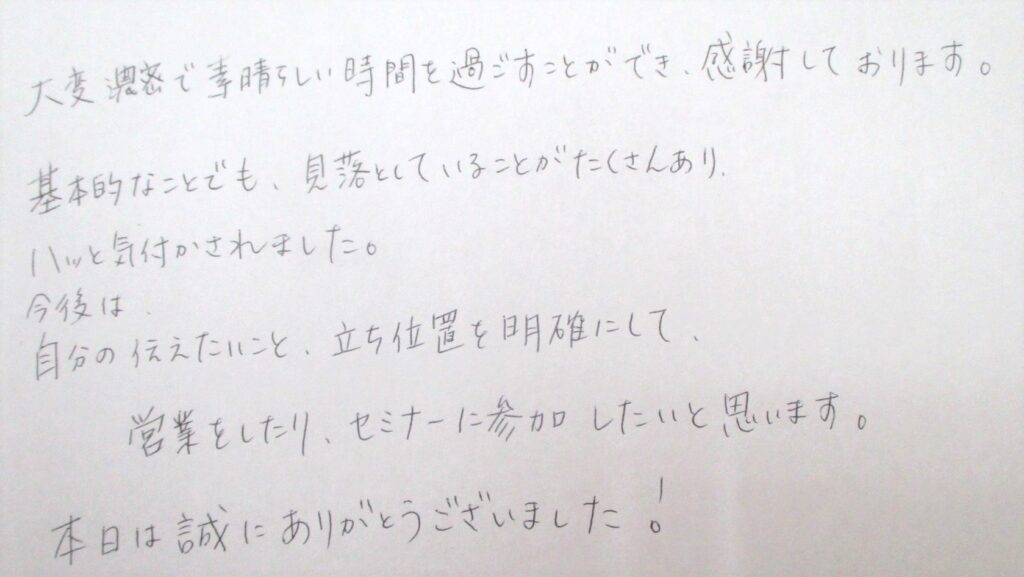 大変濃密で素晴らしい時間を過ごすことができ、感謝しております。
基本的なことでも、見落としていることがたくさんあり、
ハッと気付かされました。
今後は、
自分の伝えたいこと、立ち位置を明確にして、
営業をしたり、セミナーに参加したいと思います。
本日は誠にありがとうございました!